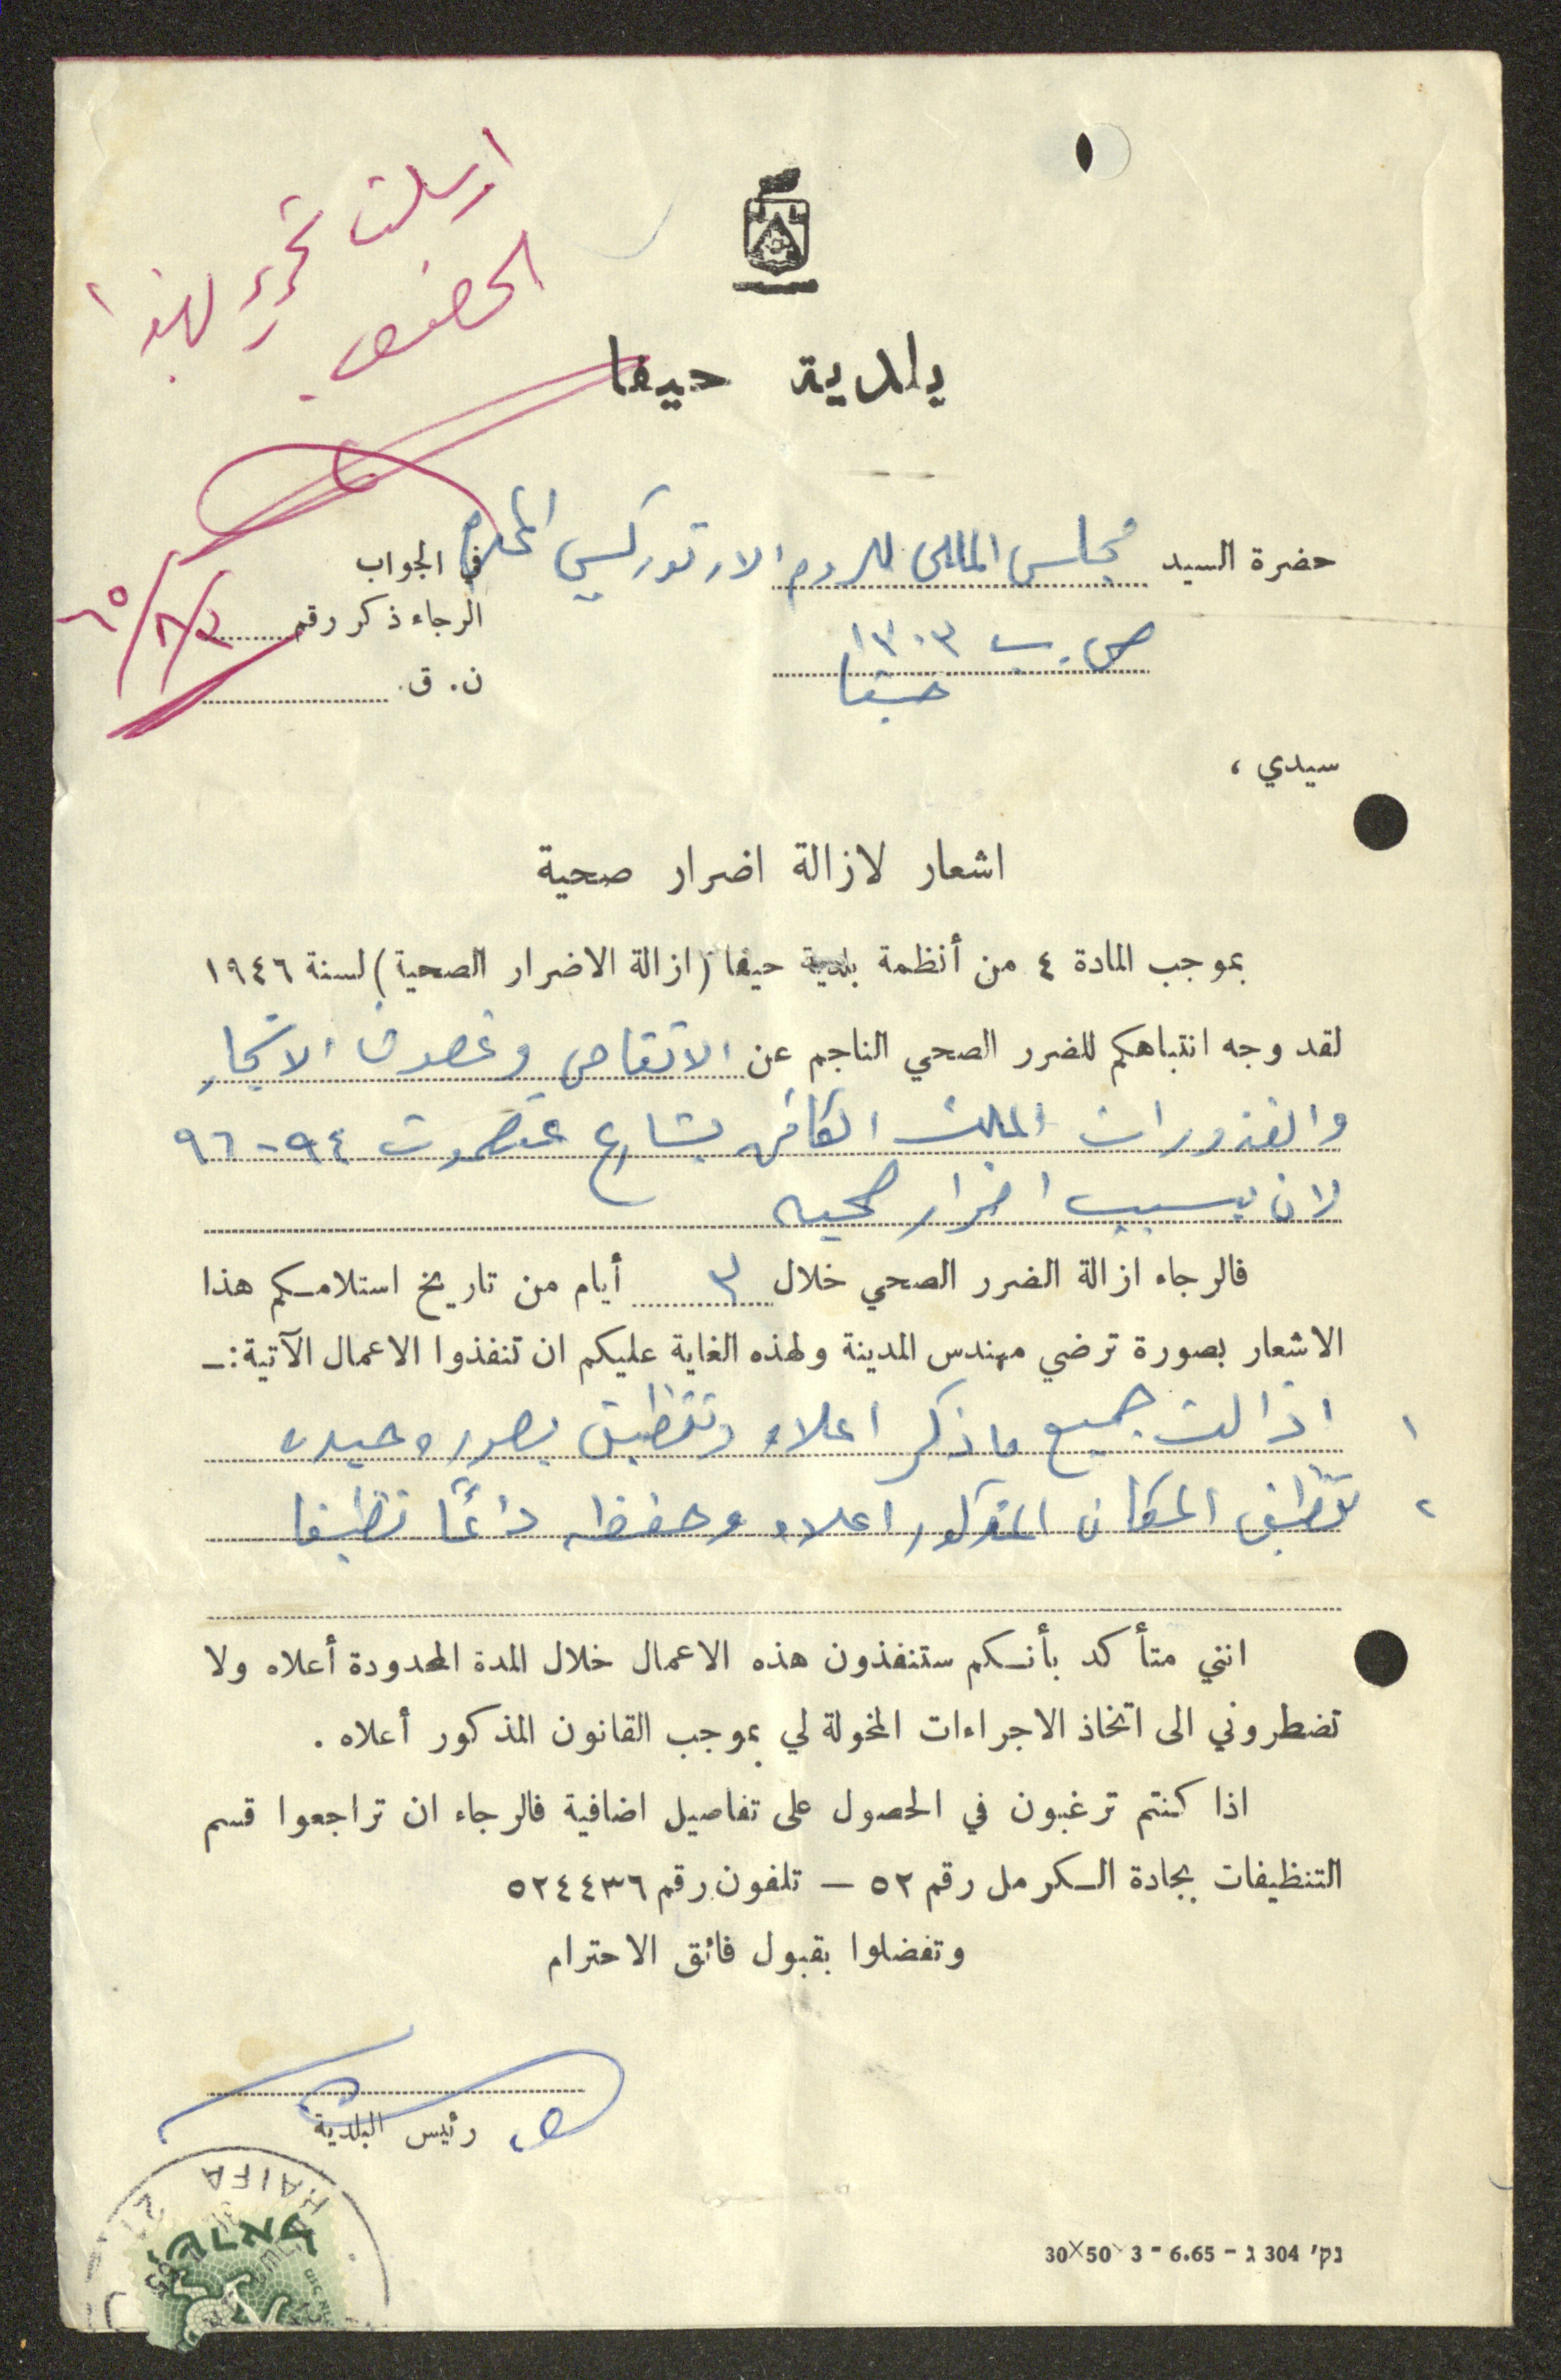 ارسلت تحرير لهذا
الخصوص
بلدية حيفا
حضرة السيد مجلس الملي للروم الارتوركسي المحترم
ص.ب ١٣٠٣
حيفا
في الجواب
الرجاء ذكر رقم
ن. ق.
٢/٨/٦٥
سيدي ،
اشعار لازالة اضرار صحية
بموجب المادة ٤ من أنظمة بلدية حيفا (ازالة الاضرار الصحية) لسنة ١٩٤٦
لقد وجه انتباهكم للضرر الصحي الناجم عن الانقاض وغصون الاشجار
والقذورات الملك الكائن بشارع عتصموت ٩٤-٩٦
لان يسبب اضرار صحيه
فالرجاء ازالة الضرر الصحي خلال ٣ أيام من تاريخ استلامكم هذا
الاشعار بصورة ترضي مهندس المدينة ولهذه الغاية عليكم ان تنفذوا الاعمال الآتية:ـ
١ اذالت جميع ماذكر اعلاه وتنظيف بصوره جيده
٢ تنظيف المكان المذكور اعلاه وحفظه دائمًا نظيفا
انني متأكد بأنكم ستنفذون هذه الاعمال خلال المدة المحدودة أعلاه ولا
تضطروني الى اتخاذ الاجراءات المخولة لي بموجب القانون المذكور أعلاه .
اذا كنتم ترغبون في الحصول على تفاصيل اضافية فالرجاء ان تراجعوا قسم
التنظيفات بجادة الكرمل رقم ٥٢ — تلفون رقم ٥٢٤٤٣٦
وتفضلوا بقبول فائق الاحترام
رئيس البلدية
HAIFA
ישראל
נק' 304 ג - 6.65 - 3 50×30